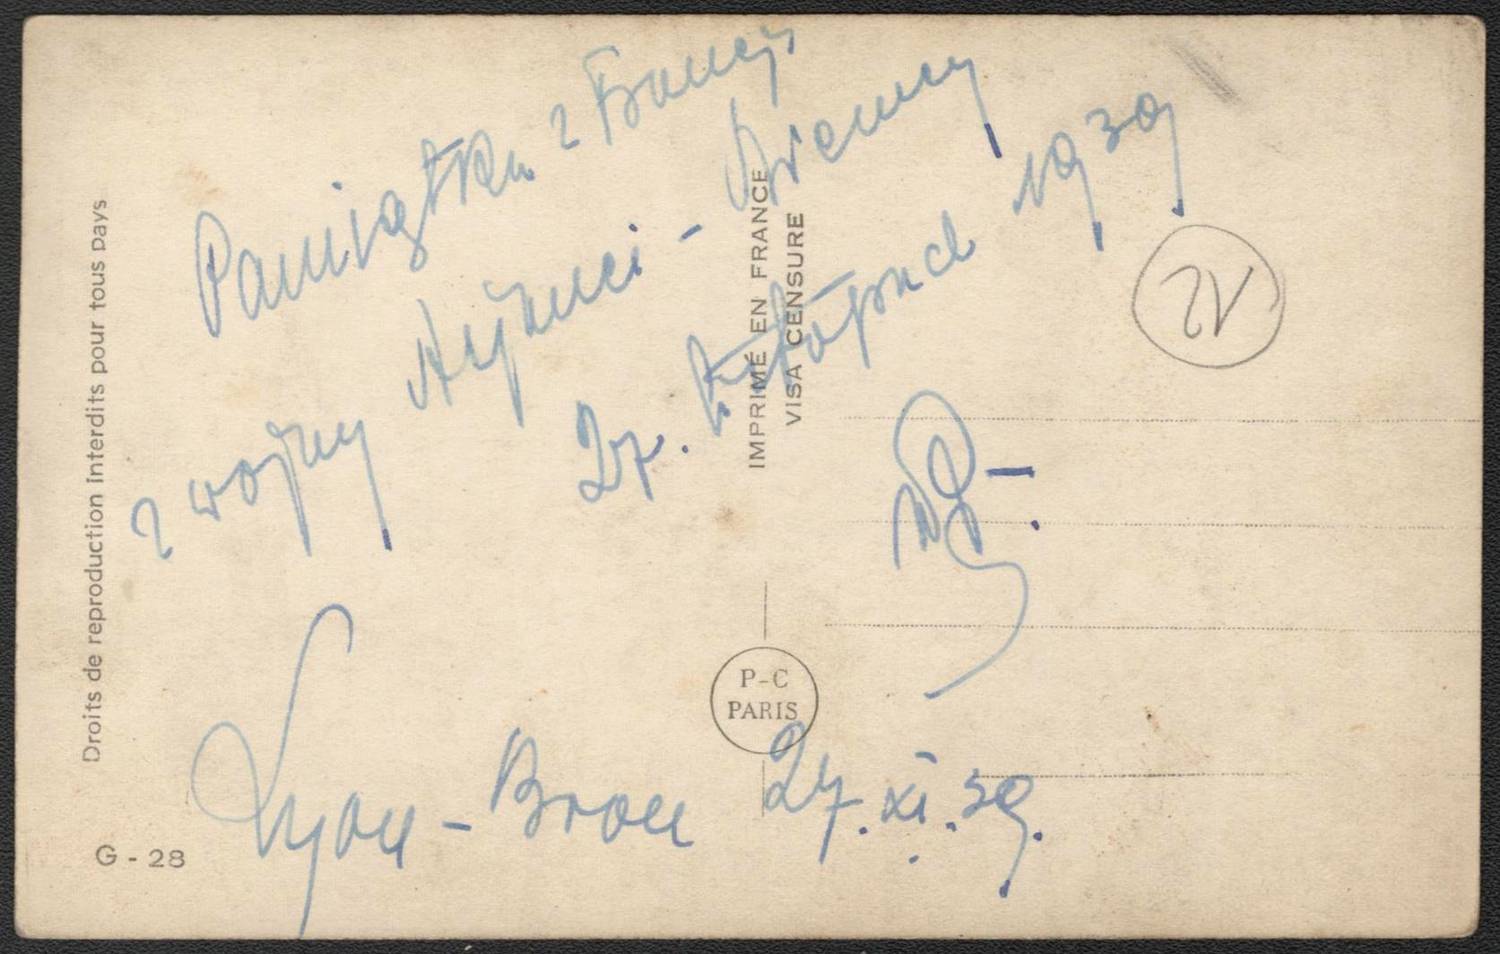 Pamiątka z Francji
z wojny Aljanci - Niemcy
27. Listopad 1939
Lyon - Bron 27.XI.39.
Droits de reproduction interdits pour tous pays
IMPRIMÉ EN FRANCE
VISA CENSURE
P-C
PARIS
G - 28